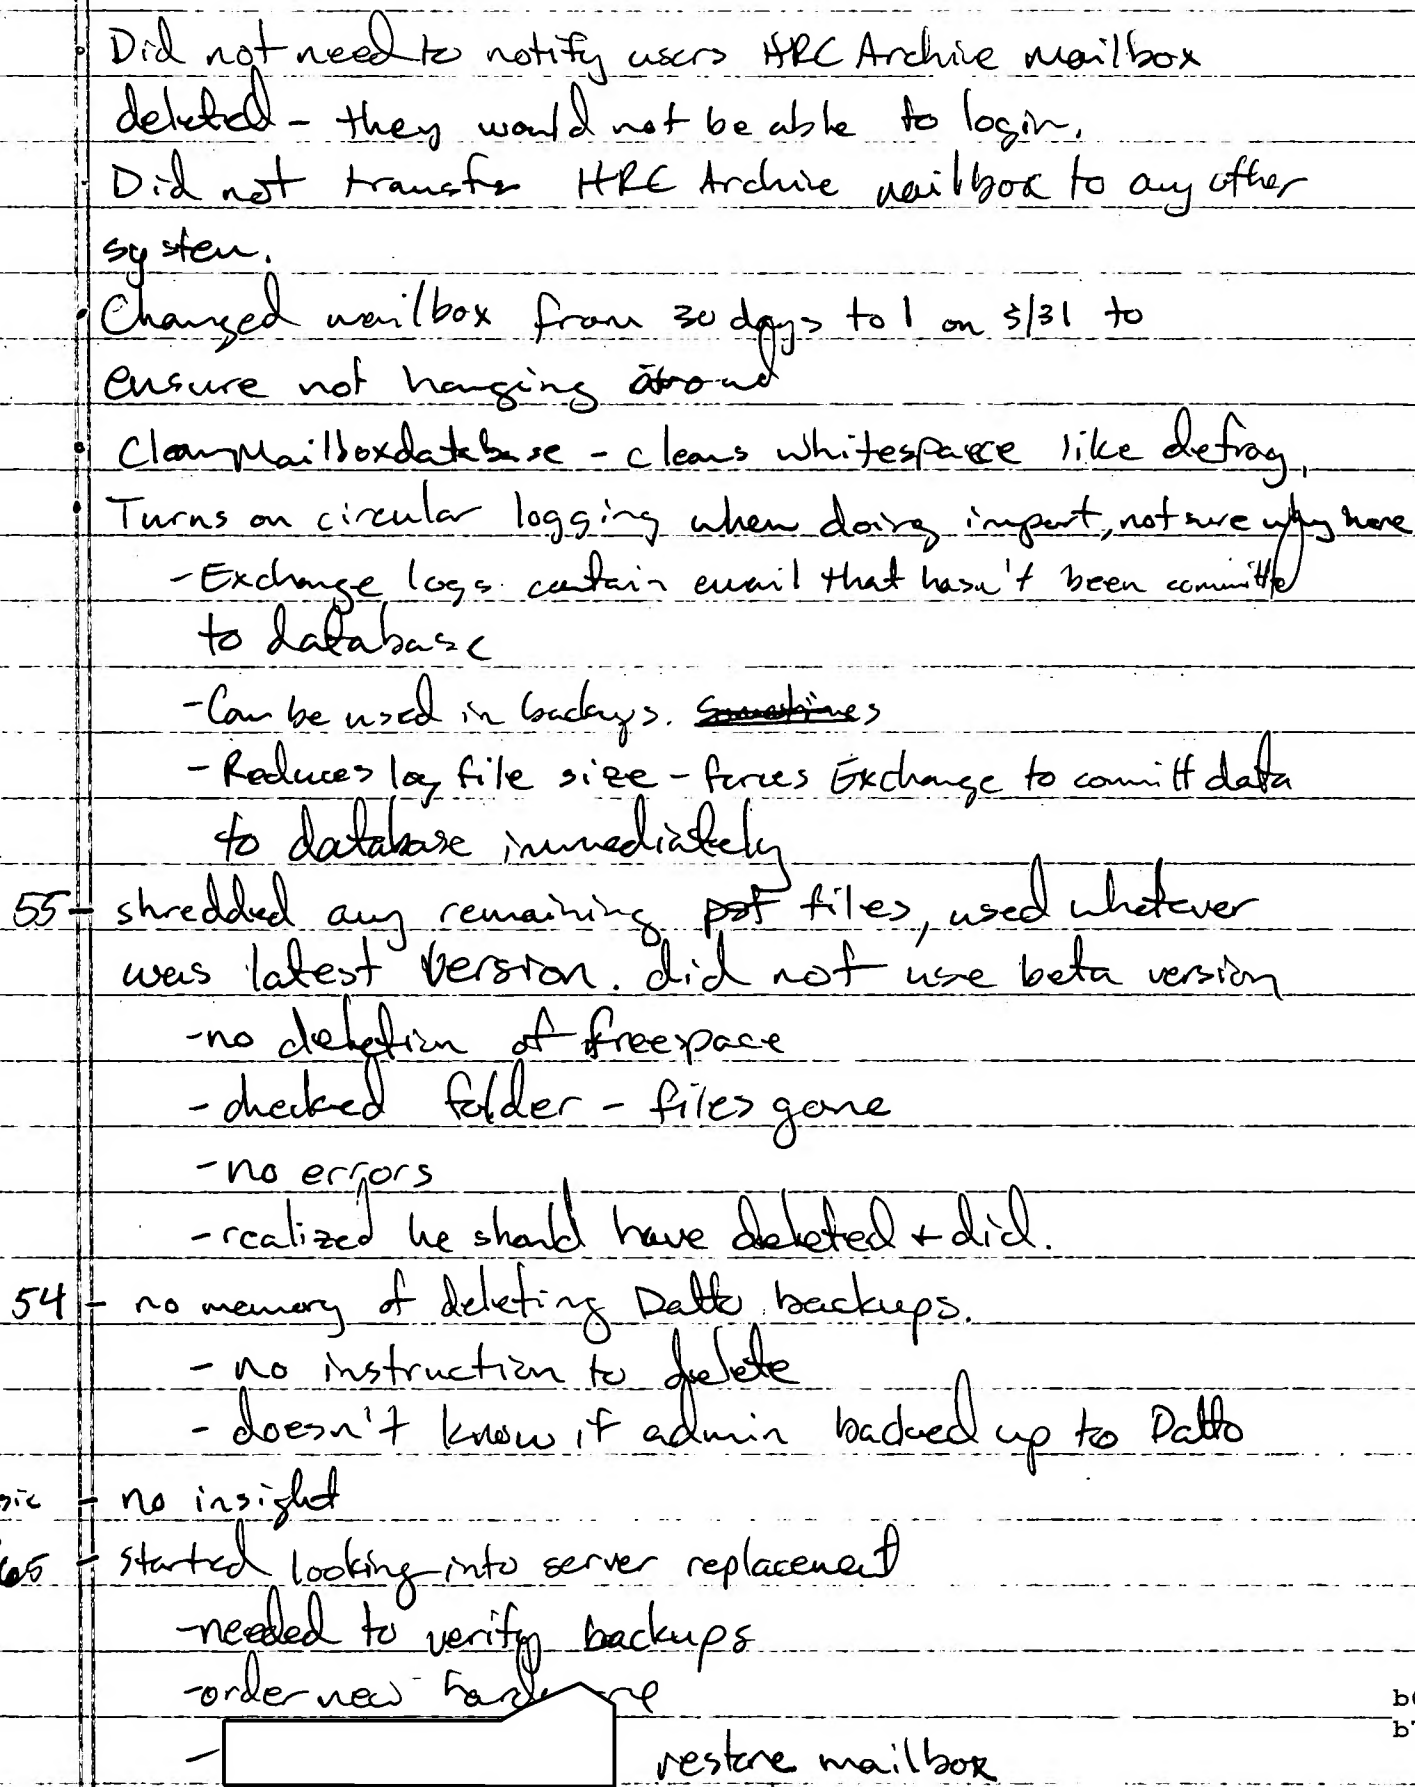 • Did not need to notify users HRC Archive mailbox
deleted - they would not be able to login.
· Did not transfer HRC Archive mailbox to any other
system.
• Changed mailbox from 30 days to 1 on 3/31 to
ensure not hanging around
• CleanMailboxdatabase - cleans whitespace like defrag.
• Turns on circular logging when doing import, not sure why here
- Exchange logs contain email that hasn't been committe
to database
- Can be used in backups.
- Reduces log file size - forces Exchange to committ data
to database immediately
55 - shredded any remaining pst files, used whatever
was latest version. did not use beta version
- no deletion of freespace
- checked folder - files gone
- no errors
- realized he should have deleted + did.
54 - no memory of deleting Datto backups.
- no instruction to delete
- doesn't know if admin backed up to Datto
sic - no insight
65 - started looking into server replacement
- needed to verify backups
- order new hardware
b6
b7
- restore mailbox